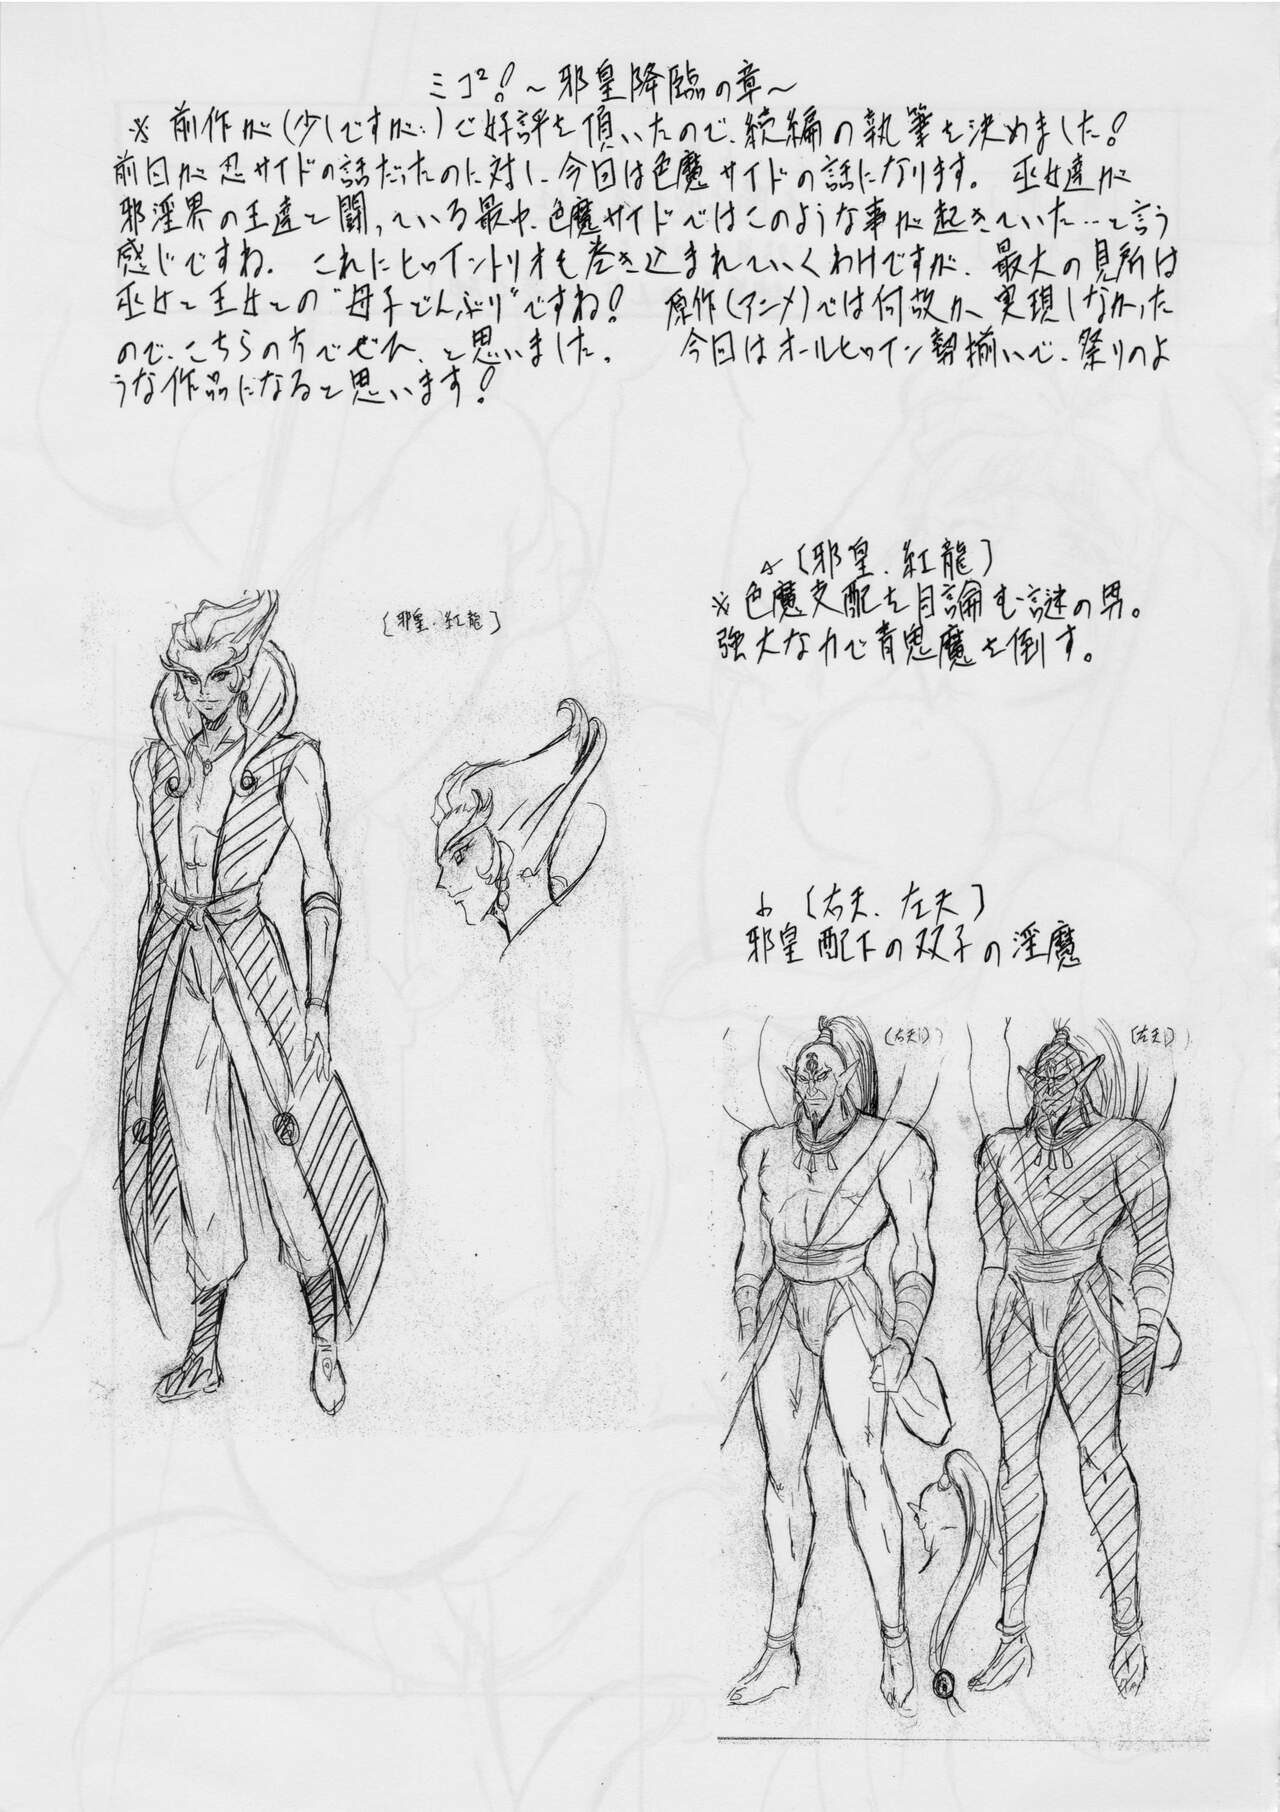 ミコ²!～邪皇降臨の章～
※前作が(少しですが…)ご好評を頂いたので、続編の執筆を決めました!
前回が忍サイドの話だったのに対し、今回は色魔サイドの話になります。 巫女達が
邪淫界の王達と闘っている最中、色魔サイドではこのような事が起きていた…と言う
感じですね。 これにヒロイントリオも巻き込まれていくわけですが、最大の見所は
巫女と王女との"母子どんぶり"ですね! 原作(アニメ)では何故か、実現しなかった
ので、こちらの方でぜひ、と思いました。 今回はオールヒロイン勢揃いで、祭りのよ
うな作品になると思います!
[邪皇・紅龍]
※色魔支配を目論む謎の男。
強大な力で青鬼魔を倒す。
[邪皇・紅龍]
[右天、左天]
邪皇配下の双子の淫魔
(右天)
(左天)